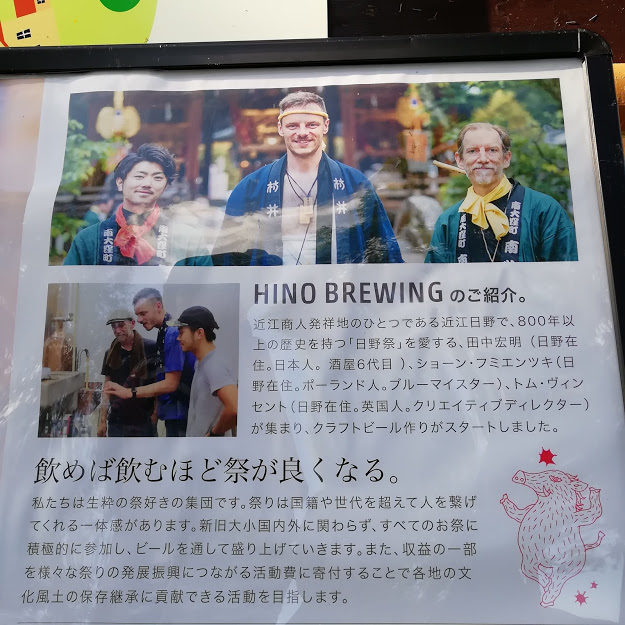 村井
村井
南大窪町
南大窪町
南
HINO BREWING のご紹介。
近江商人発祥地のひとつである近江日野で、800年以
上の歴史を持つ「日野祭」を愛する、田中宏明（日野在
住。日本人。酒屋6代目）、ショーン・フミエンツキ（日
野在住。ポーランド人。ブルーマイスター）、トム・ヴィン
セント（日野在住。英国人。クリエイティブディレクター）
が集まり、クラフトビール作りがスタートしました。
飲めば飲むほど祭が良くなる。
私たちは生粋の祭好きの集団です。祭りは国籍や世代を超えて人を繋げ
てくれる一体感があります。新旧大小国内外に関わらず、すべてのお祭に
積極的に参加し、ビールを通して盛り上げていきます。また、収益の一部
を様々な祭りの発展振興につながる活動費に寄付することで各地の文
化風土の保存継承に貢献できる活動を目指します。